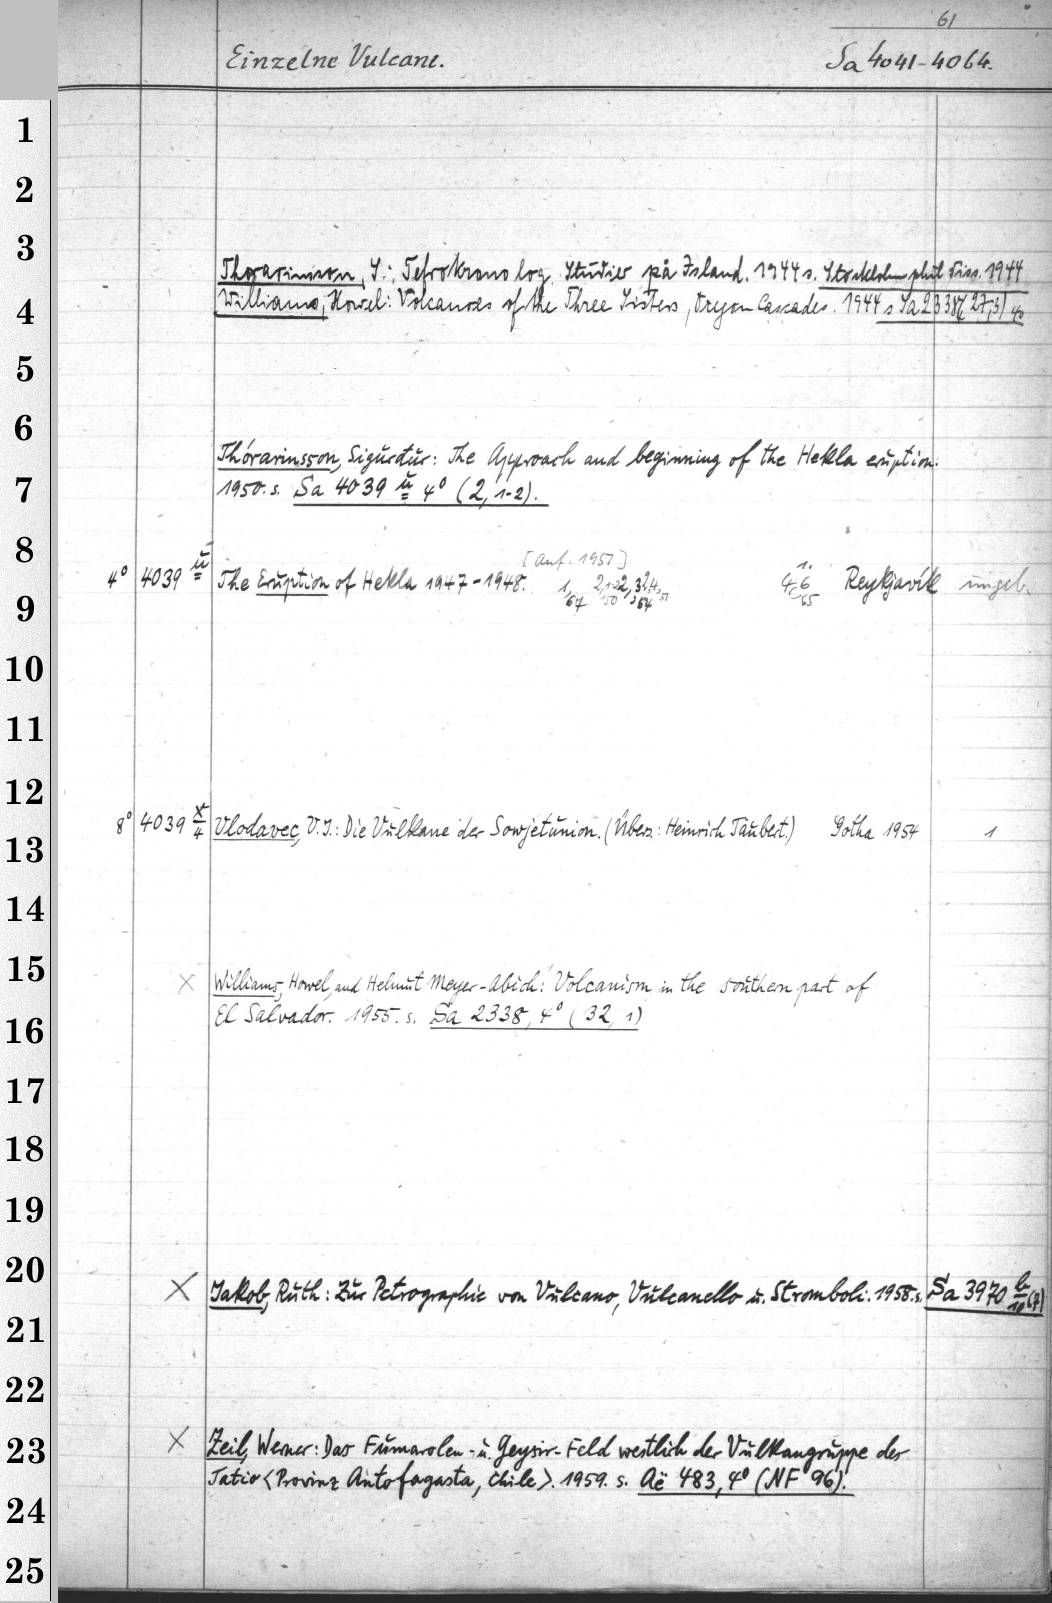 61
Einzelne Vulcane. Sa 4041-4064.
1
2
3
Thorarinsson, S.: Tefrokronolog. Studier på Island. 1944 s. Stockholm phil Diss. 1944
4 Williams, Howel: Volcanoes of the Three Sisters, Oregon Cascades. 1944 s Sa 2338 (27,3) 4°
5
6
Thórarinsson, Sigurdur: The Approach and beginning of the Hekla eruption.
7 1950. s. Sa 4039 u 4° (2, 1-2).
8 [Anf. 1951]
4° 4039 u The Eruption of Hekla 1947-1948. Reykjavík ungeb.
9
10
11
12
8° 4039 x/4 Vlodavec, V.I.: Die Vulkane der Sowjetunion. (Übers.: Heinrich Taubert.) Gotha 1954 1
13
14
15 × Williams, Howel, and Helmut Meyer-Abich: Volcanism in the southern part of
16 El Salvador. 1955. s. Sa 2338, 4° (32, 1)
17
18
19
20
× Jakob, Ruth: Zur Petrographie von Vulcano, Vulcanello u. Stromboli. 1958. s. Sa 3970 b/10 (7)
21
22
23 × Zeil, Werner: Das Fumarolen- u. Geysir-Feld westlich der Vulkangruppe des
Tatio <Provinz Antofagasta, Chile>. 1959. s. Aë 483, 4° (NF 96).
24
25